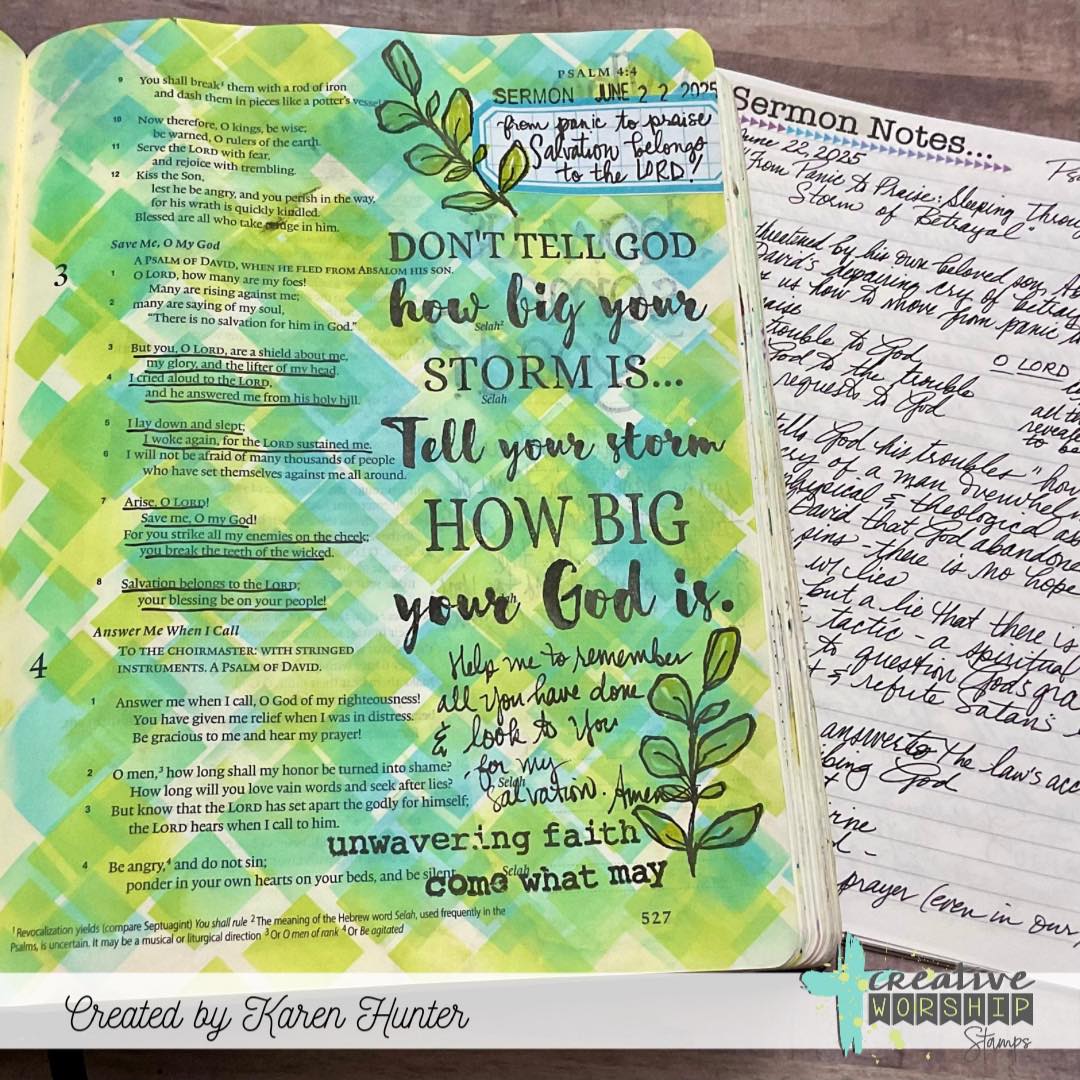 PSALM 4:4
9 You shall break¹ them with a rod of iron
and dash them in pieces like a potter's vessel
10 Now therefore, O kings, be wise;
be warned, O rulers of the earth.
11 Serve the LORD with fear,
and rejoice with trembling.
12 Kiss the Son,
lest he be angry, and you perish in the way,
for his wrath is quickly kindled.
Blessed are all who take refuge in him.
Save Me, O My God
3 A PSALM OF DAVID, WHEN HE FLED FROM ABSALOM HIS SON.
1 O LORD, how many are my foes!
Many are rising against me;
2 many are saying of my soul,
"There is no salvation for him in God."
Selah²
3 But you, O LORD, are a shield about me,
my glory, and the lifter of my head.
4 I cried aloud to the LORD,
and he answered me from his holy hill.
Selah
5 I lay down and slept;
I woke again, for the LORD sustained me.
6 I will not be afraid of many thousands of people
who have set themselves against me all around.
7 Arise, O LORD!
Save me, O my God!
For you strike all my enemies on the cheek;
you break the teeth of the wicked.
8 Salvation belongs to the LORD;
your blessing be on your people!
Selah
Answer Me When I Call
4 TO THE CHOIRMASTER: WITH STRINGED
INSTRUMENTS. A PSALM OF DAVID.
1 Answer me when I call, O God of my righteousness!
You have given me relief when I was in distress.
Be gracious to me and hear my prayer!
2 O men,³ how long shall my honor be turned into shame?
How long will you love vain words and seek after lies?
Selah
3 But know that the LORD has set apart the godly for himself;
the LORD hears when I call to him.
4 Be angry,⁴ and do not sin;
ponder in your own hearts on your beds, and be silent.
Selah
¹ Revocalization yields (compare Septuagint) You shall rule ² The meaning of the Hebrew word Selah, used frequently in the
Psalms, is uncertain. It may be a musical or liturgical direction ³ Or O men of rank ⁴ Or Be agitated
527
SERMON JUNE 22 2025
from panic to praise
Salvation belongs
to the LORD!
DON'T TELL GOD
how big your
STORM IS...
Tell your storm
HOW BIG
your God is.
Help me to remember
all You have done
& look to You
for my
Salvation. Amen
unwavering faith
come what may
Sermon Notes...
June 22, 2025
"From Panic to Praise: Sleeping Through
Storm of Betrayal"
threatened by his own beloved son,
David's despairing cry of
us how to move from panic
trouble to God
God to the trouble
requests to God
O LORD
all
to
God his troubles "how
cry of a man
physical & theological
David that God
there is no hope
w/ lies
but a lie that there is
tactic - a spiritual
to question God's
& refute Satan's
answer to the law's
God
prayer (even in our
Created by Karen Hunter
creative
WORSHIP
Stamps